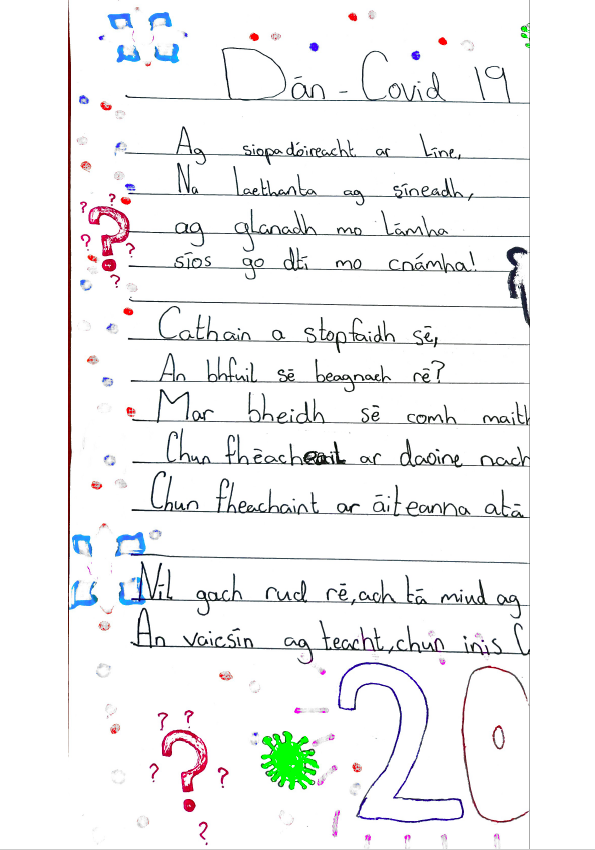 Dán - Covid 19
Ag siopadóireacht ar Líne,
Na laethanta ag síneadh,
ag glanadh mo Lámha
síos go dtí mo cnámha!
Cathain a stopfaidh sé,
An bhfuil sé beagnach ré?
Mar bheidh sé comh maith
Chun fhéach ar daoine nach
Chun fheachaint ar áiteanna atá
Níl gach rud ré, ach tá muid ag
An vaicsín ag teacht, chun inis
20